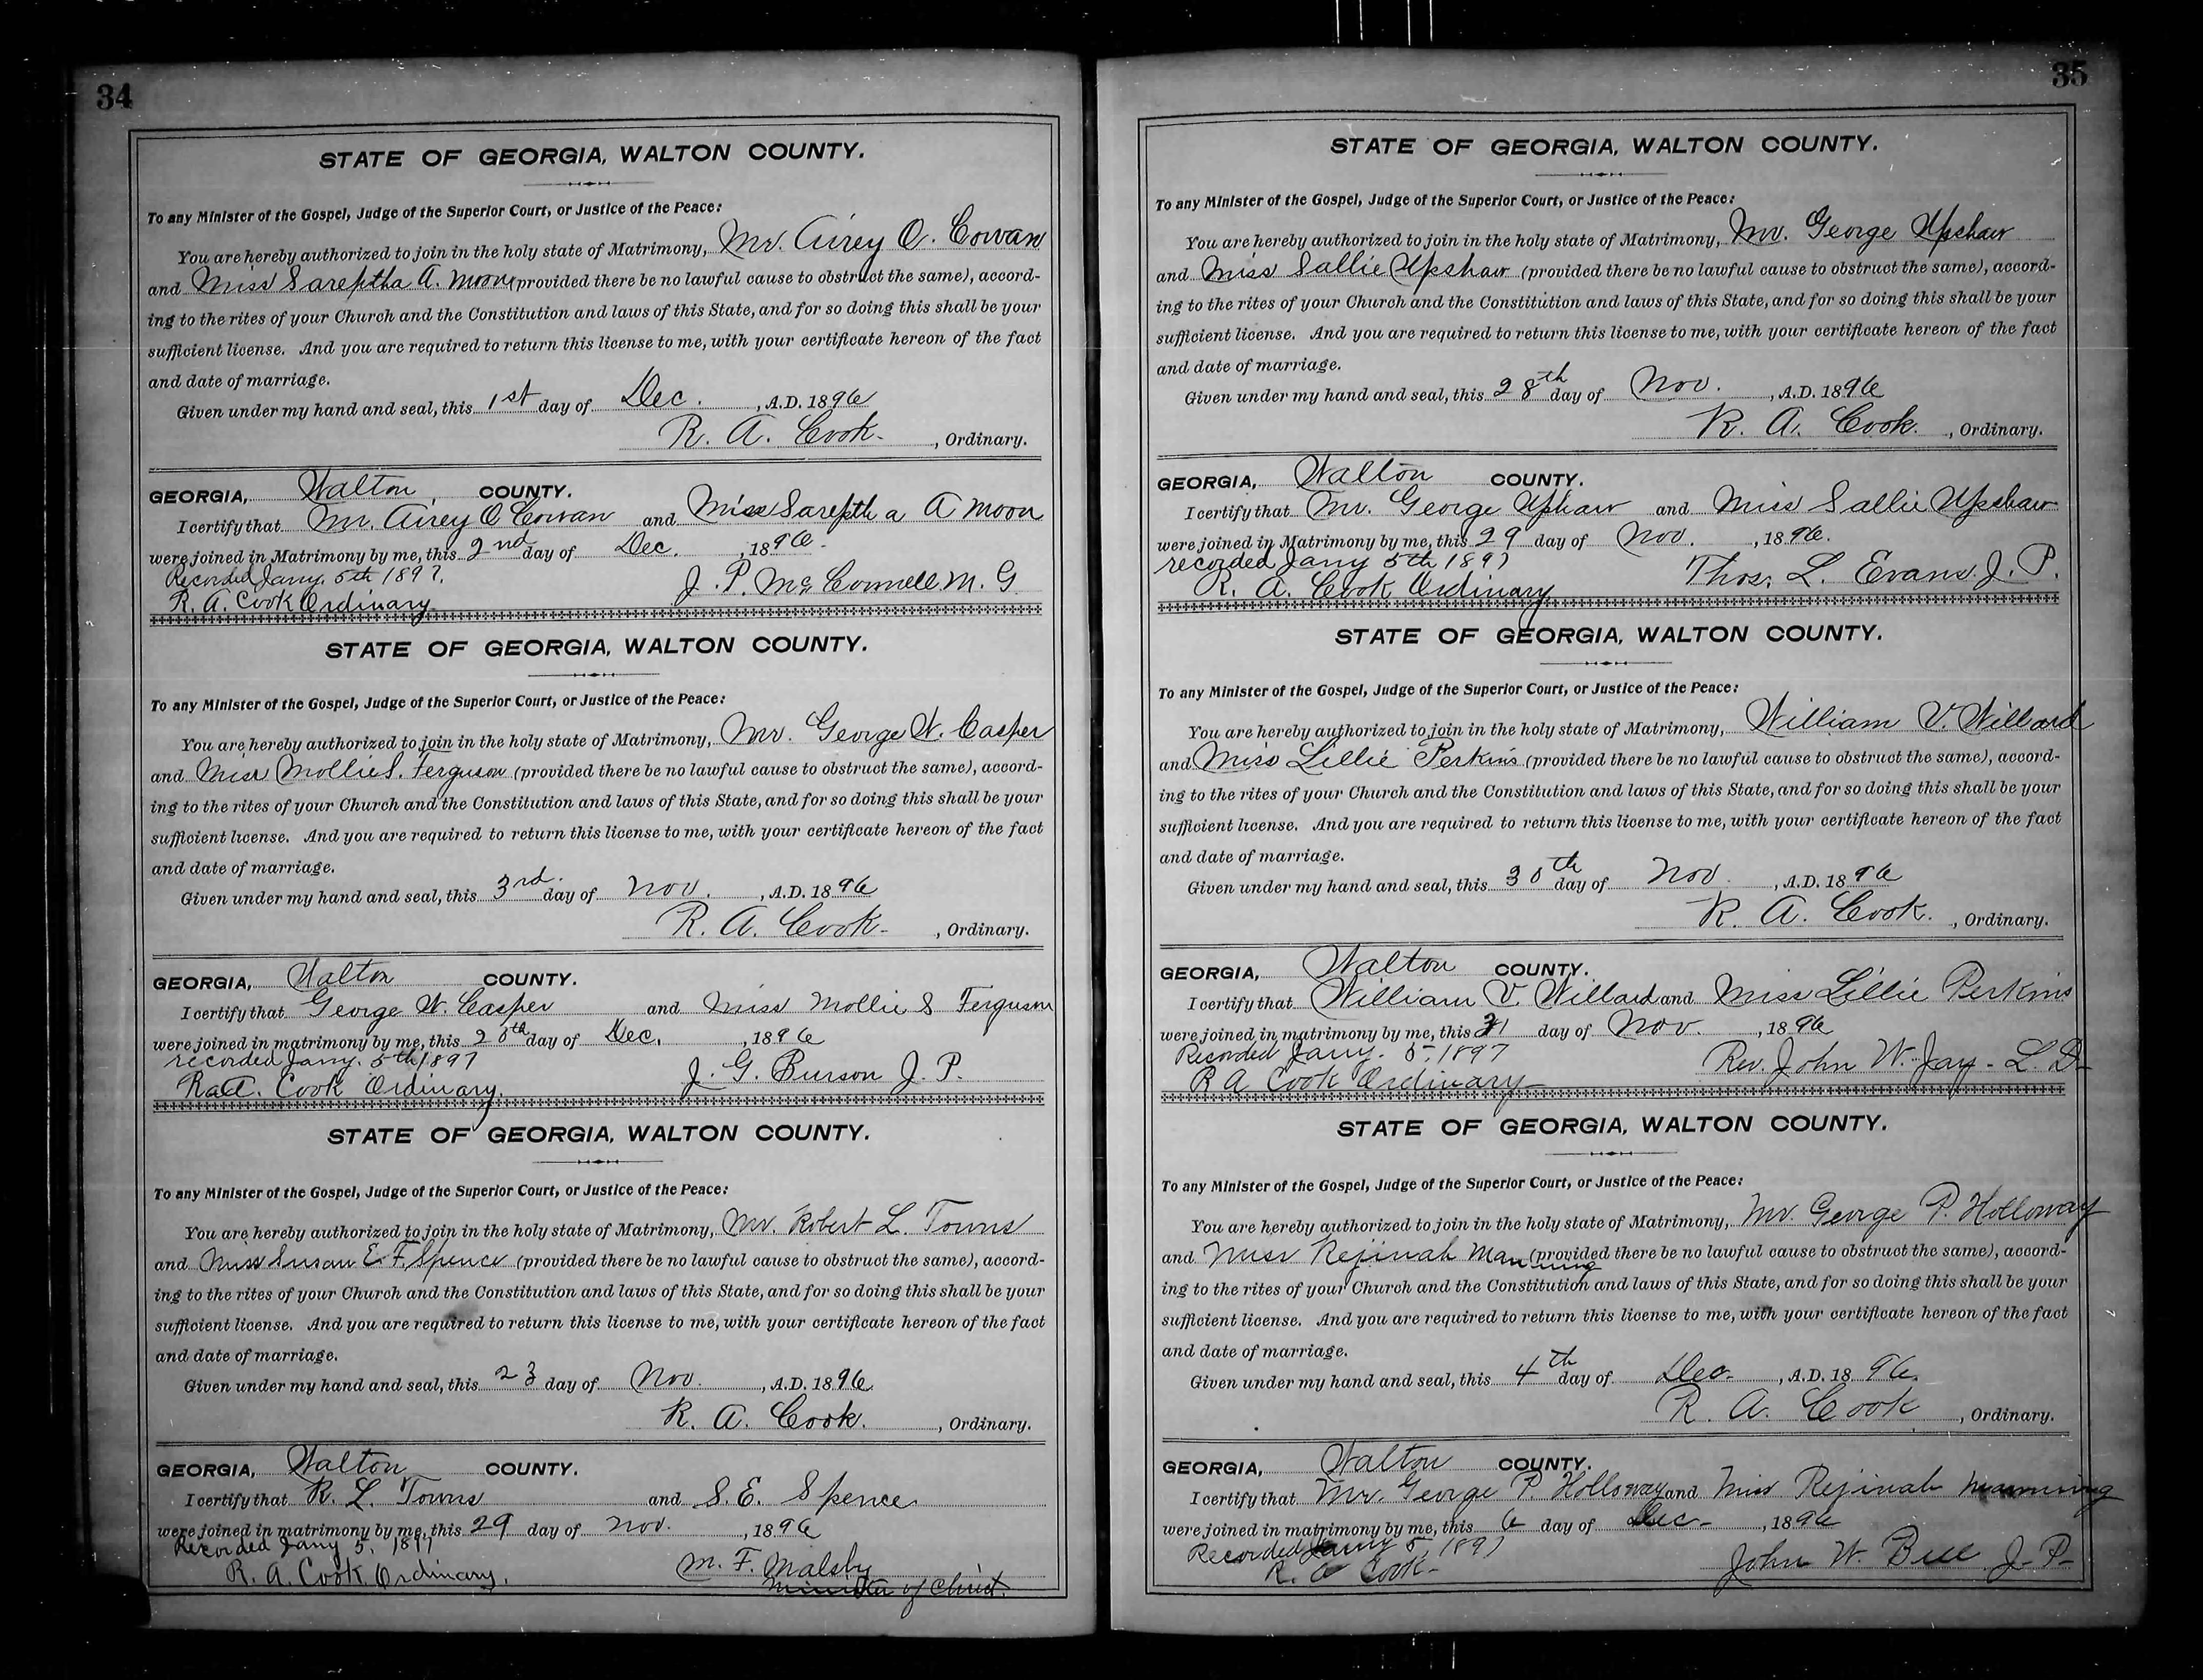 34
STATE OF GEORGIA, WALTON COUNTY.
To any Minister of the Gospel, Judge of the Superior Court, or Justice of the Peace:
You are hereby authorized to join in the holy state of Matrimony, Mr. Airey O. Cowan
and Miss Sareptha A. Moon (provided there be no lawful cause to obstruct the same), accord-
ing to the rites of your Church and the Constitution and laws of this State, and for so doing this shall be your
sufficient license. And you are required to return this license to me, with your certificate hereon of the fact
and date of marriage.
Given under my hand and seal, this 1st day of Dec. , A.D. 1896
R. A. Cook. , Ordinary.
GEORGIA, Walton COUNTY.
I certify that Mr. Airey O Cowan and Miss Sareptha A Moon
were joined in Matrimony by me, this 2nd day of Dec. , 1896.
Recorded Jany. 5th 1897. J. P. McConnell M. G.
R. A. Cook Ordinary
STATE OF GEORGIA, WALTON COUNTY.
To any Minister of the Gospel, Judge of the Superior Court, or Justice of the Peace:
You are hereby authorized to join in the holy state of Matrimony, Mr. George W. Casper
and Miss Mollie S. Ferguson (provided there be no lawful cause to obstruct the same), accord-
ing to the rites of your Church and the Constitution and laws of this State, and for so doing this shall be your
sufficient license. And you are required to return this license to me, with your certificate hereon of the fact
and date of marriage.
Given under my hand and seal, this 3rd. day of Nov. , A.D. 1896
R. A. Cook. , Ordinary.
GEORGIA, Walton COUNTY.
I certify that George W. Casper and Miss Mollie S Ferguson
were joined in matrimony by me, this 20th day of Dec. , 1896
recorded Jany. 5th 1897 J. G. Burson J. P.
R. A. Cook Ordinary
STATE OF GEORGIA, WALTON COUNTY.
To any Minister of the Gospel, Judge of the Superior Court, or Justice of the Peace:
You are hereby authorized to join in the holy state of Matrimony, Mr. Robert L. Towns
and Miss Susan E. F. Spence (provided there be no lawful cause to obstruct the same), accord-
ing to the rites of your Church and the Constitution and laws of this State, and for so doing this shall be your
sufficient license. And you are required to return this license to me, with your certificate hereon of the fact
and date of marriage.
Given under my hand and seal, this 23 day of Nov. , A.D. 1896
R. A. Cook. , Ordinary.
GEORGIA, Walton COUNTY.
I certify that R. L. Towns and S. E. Spence
were joined in matrimony by me, this 29 day of Nov. , 1896
Recorded Jany 5, 1897 M. F. Malsby
R. A. Cook Ordinary. Minister of Christ.
35
STATE OF GEORGIA, WALTON COUNTY.
To any Minister of the Gospel, Judge of the Superior Court, or Justice of the Peace:
You are hereby authorized to join in the holy state of Matrimony, Mr. George Upshaw
and Miss Sallie Upshaw (provided there be no lawful cause to obstruct the same), accord-
ing to the rites of your Church and the Constitution and laws of this State, and for so doing this shall be your
sufficient license. And you are required to return this license to me, with your certificate hereon of the fact
and date of marriage.
Given under my hand and seal, this 28th day of Nov. , A.D. 1896
R. A. Cook. , Ordinary.
GEORGIA, Walton COUNTY.
I certify that Mr. George Upshaw and Miss Sallie Upshaw
were joined in Matrimony by me, this 29 day of Nov. , 1896.
recorded Jany 5th 1897 Thos. L. Evans J. P.
R. A. Cook Ordinary
STATE OF GEORGIA, WALTON COUNTY.
To any Minister of the Gospel, Judge of the Superior Court, or Justice of the Peace:
You are hereby authorized to join in the holy state of Matrimony, William V. Willard
and Miss Lillie Perkins (provided there be no lawful cause to obstruct the same), accord-
ing to the rites of your Church and the Constitution and laws of this State, and for so doing this shall be your
sufficient license. And you are required to return this license to me, with your certificate hereon of the fact
and date of marriage.
Given under my hand and seal, this 30th day of Nov. , A.D. 1896
R. A. Cook. , Ordinary.
GEORGIA, Walton COUNTY.
I certify that William V. Willard and Miss Lillie Perkins
were joined in matrimony by me, this 31 day of Nov. , 1896
Recorded Jany. 5. 1897 Rev. John W. Jay - L. D-
R A Cook Ordinary
STATE OF GEORGIA, WALTON COUNTY.
To any Minister of the Gospel, Judge of the Superior Court, or Justice of the Peace:
You are hereby authorized to join in the holy state of Matrimony, Mr. George P. Holloway
and Miss Rejinah Manning (provided there be no lawful cause to obstruct the same), accord-
ing to the rites of your Church and the Constitution and laws of this State, and for so doing this shall be your
sufficient license. And you are required to return this license to me, with your certificate hereon of the fact
and date of marriage.
Given under my hand and seal, this 4th day of Dec. , A.D. 1896.
R. A. Cook , Ordinary.
GEORGIA, Walton COUNTY.
I certify that Mr. George P. Holloway and Miss Rejinah Manning
were joined in matrimony by me, this 6 day of Dec- , 1896
Recorded Jany 5, 1897 John W. Bell J- P-
R. A Cook-